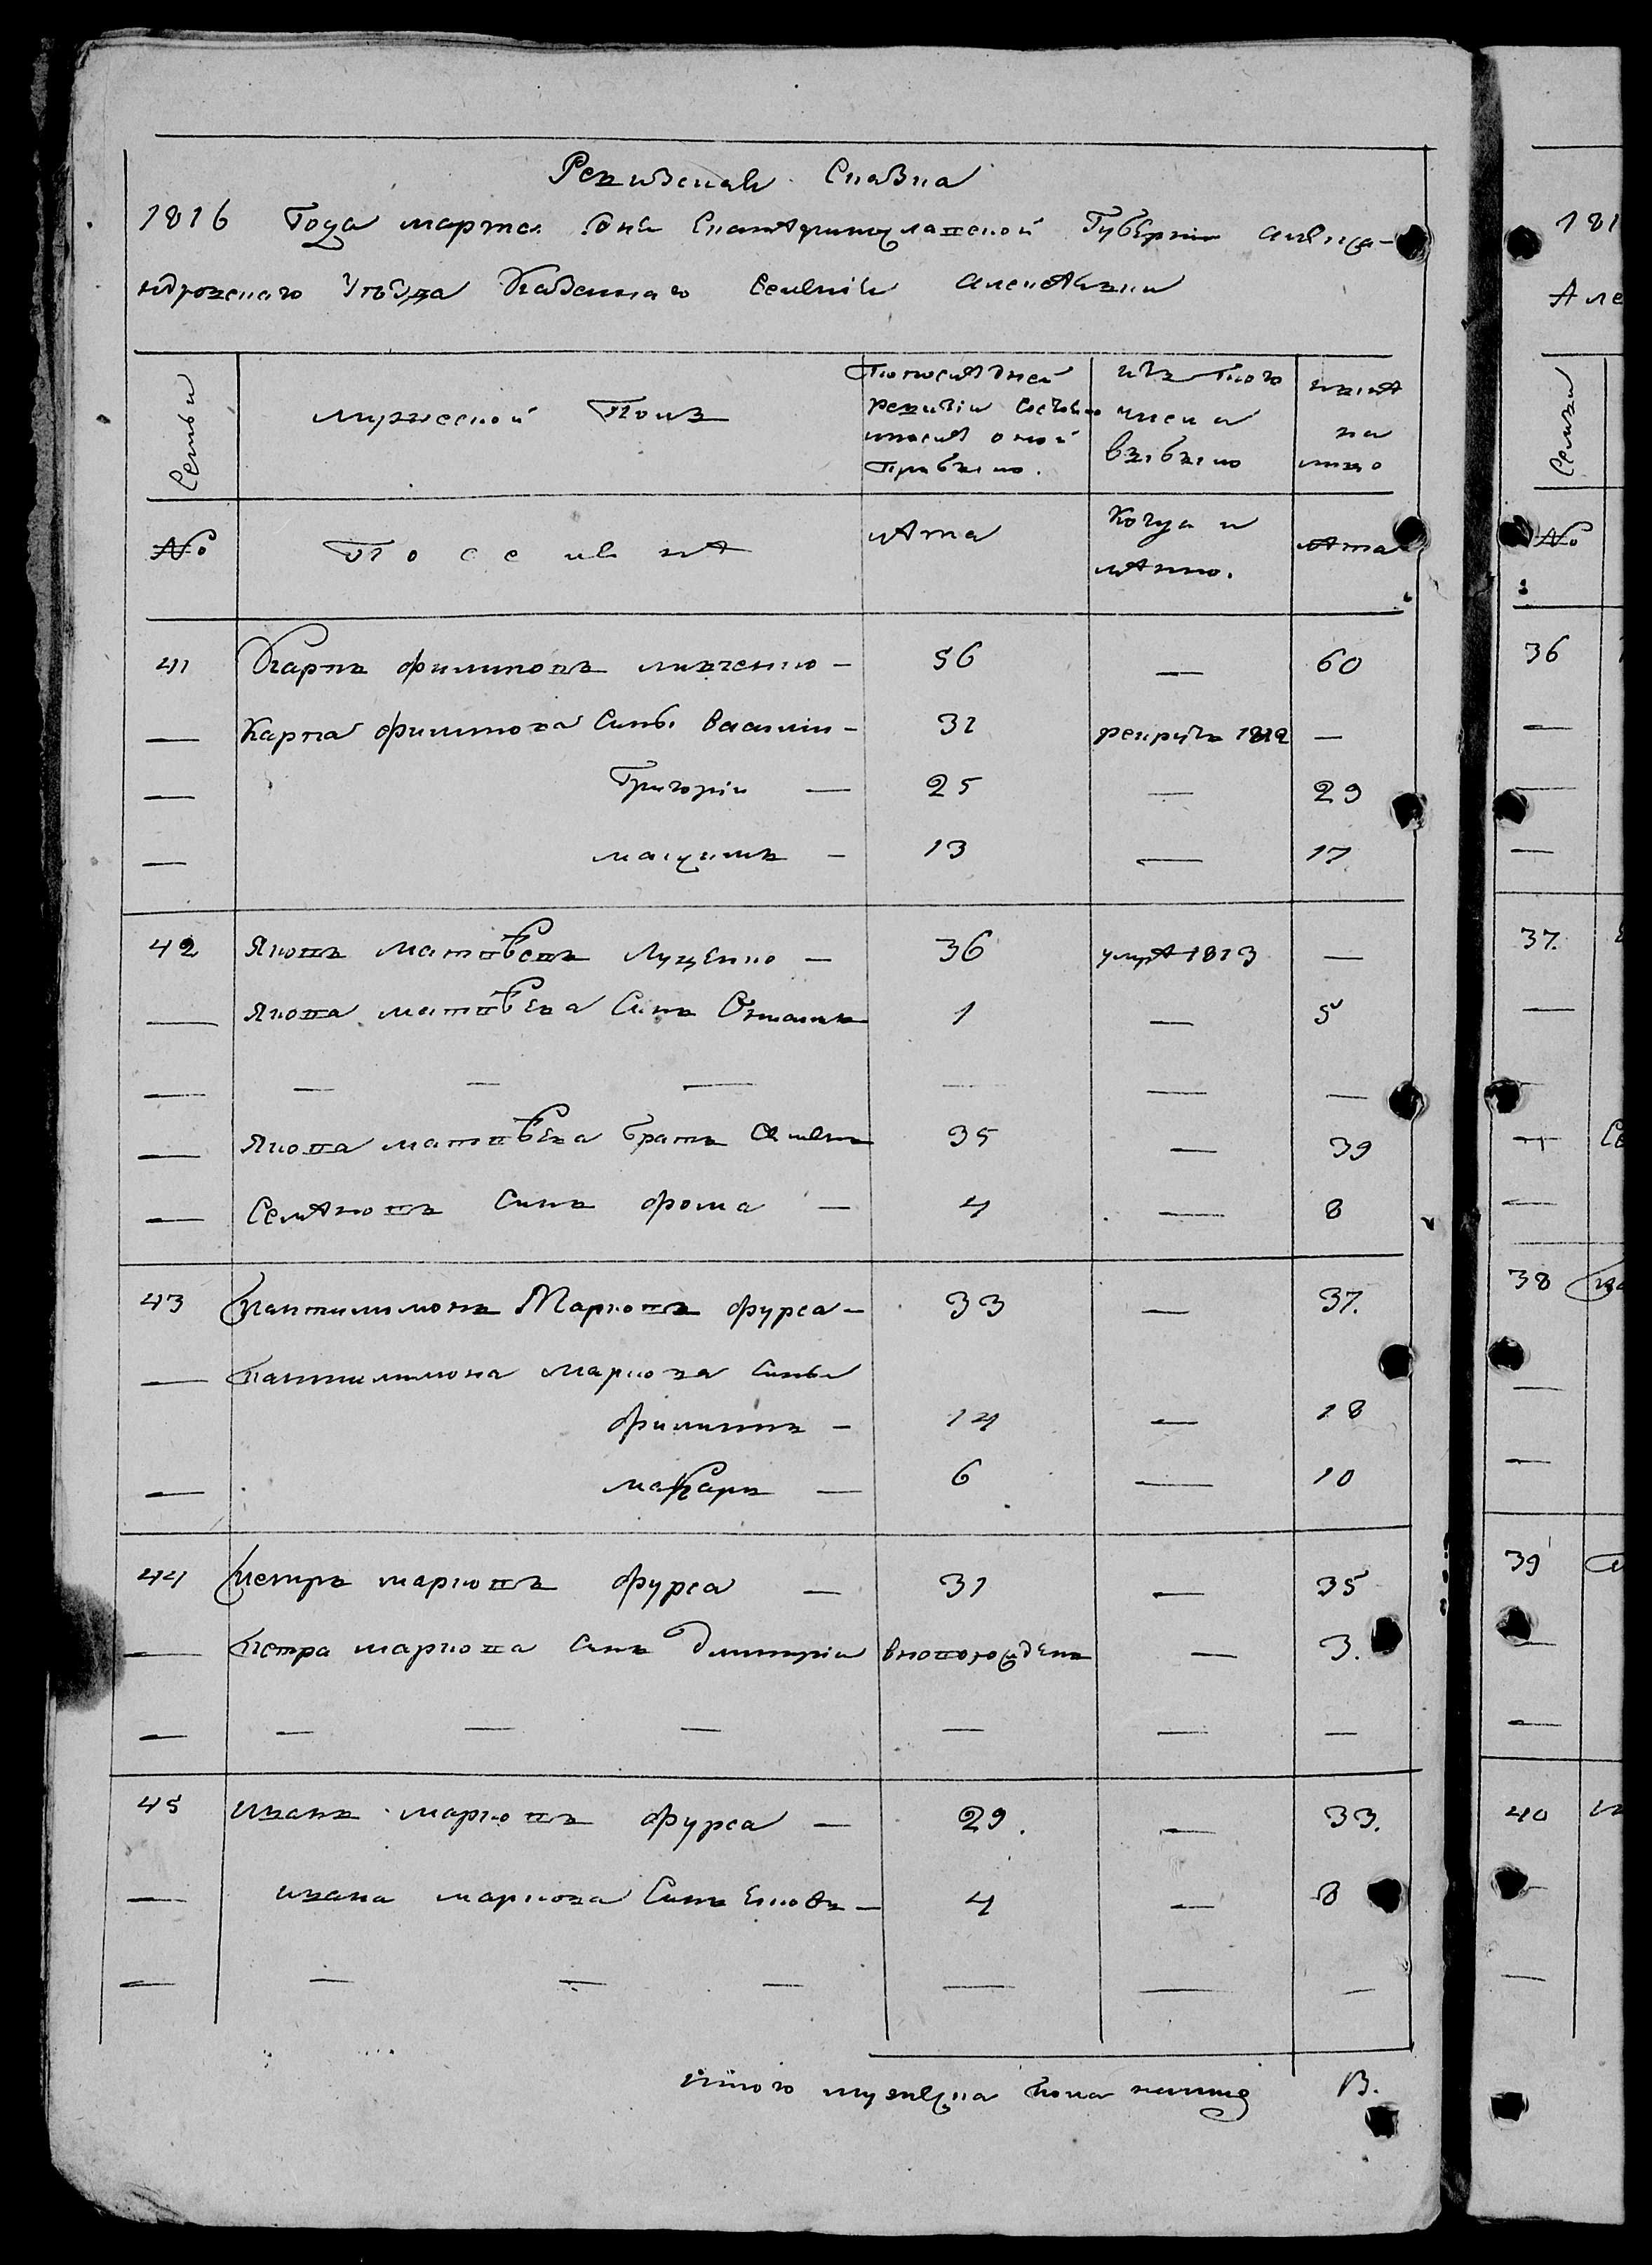 Ревизская Сказка
1816 Года марта дня Екатеринославской Губернии Алекса-
ндровского Уезда Казенного Селения Алексеевки
Семьи
мужеской Полъ
По последней ревизии состояло и после оной прибыло.
изъ того числа выбыло
ныне на лицо
№
Поселяне
лета
Когда и
лета
41 Карпъ филиповъ – 56 — 60
— Карпа филипова Сины Василии – 31 рекрутъ 1812 —
— Григории — 25 — 29
— максимъ – 13 — 17
42 Яковъ матвеевъ Луценко – 36 умре 1813 —
— Якова матвеева Синъ 1 — 5
— — — — — — —
— Якова матвеева братъ 35 — 39
— Семеновъ Синъ фома — 4 — 8
43 Пантилимонъ Марковъ фурса – 33 — 37.
— Пантилимона маркова Сины
филипъ – 14 — 18
— макаръ — 6 — 10
44 Петръ марковъ фурса — 31 — 35
— Петра маркова Синъ Димитрии вноворожденъ — 3.
— — — — — — —
45 иванъ марковъ фурса — 29. — 33.
— ивана маркова Синъ — 4 — 8
— — — — — — —
итого мужеска пола налицо 13.
181
Але
Семьи
№
36
—
—
—
37.
—
—
—
—
38
—
—
39
—
—
40
—
—